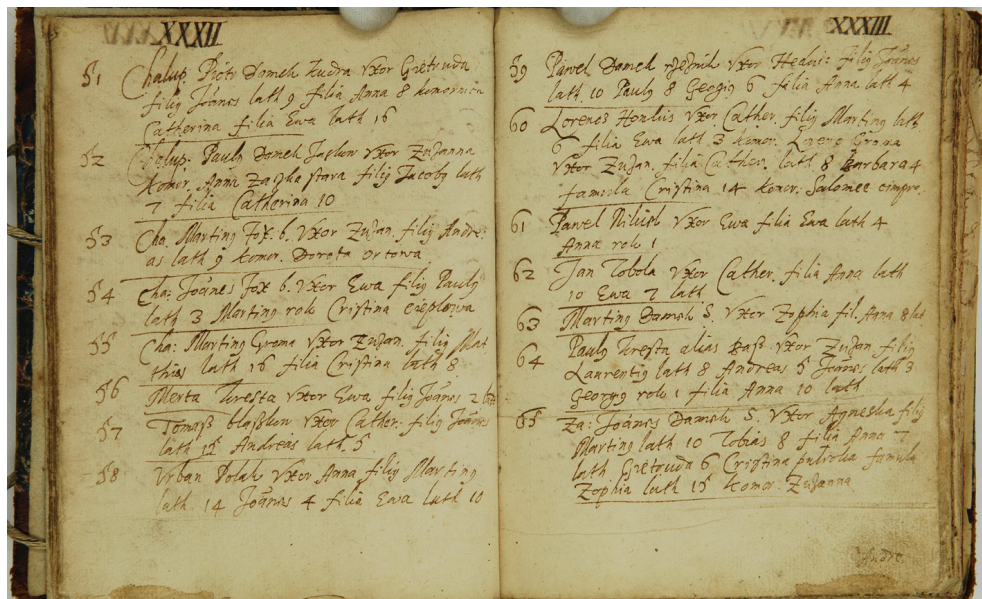 XXXII
51 Chalup. Piotr Domek Kudra Vxor Gietruda
filij Joānes lath 9 filia Anna 8 komornica
Catherina filia Ewa lath 16
52 Chalup. Paulꝰ Domek Vxor Zuzanna
Komor. Anna stara filij Jacobꝰ lath
7 filia Catherina 10
53 Cha. Martinꝰ Fox. b. Vxor Zuzan. filij Andre-
as lath 9 komor. Dorota
54 Cha: Joānes Fox b. Vxor Ewa filij Paulꝰ
lath 3 Martinꝰ rok Cristina
55 Cha: Martinꝰ Groma Vxor Zuzan. filij Mat
thias lath 16 filia Cristina lath 8
56 Merta Kresta Vxor Ewa filij Joānes 2
57 Tomaß Vxor Cather: filij Joānes
lath 15 Andreas lath 5
58 Vrban Polak Vxor Anna filij Martinꝰ
lath 14 Joānes 4 filia Ewa lath 10
XXXIII
59 Pawel Domek Vxor Hedui: filij Joānes
lath 10 Paulꝰ 8 Georgiꝰ 6 filia Anna lath 4
60 Lorencz Vxor Cather. filij Martinꝰ lath
6 filia Ewa lath 3 komor. Groma
Vxor Zuzan. filia Cather. lath 8 Barbara 4
famula Cristina 14 komor: Salomee
61 Pawel Vxor Ewa filia Ewa lath 4
Anna rok 1
62 Jan Tobola Vxor Cather. filia Anna lath
10 Ewa 7 lath
63 Martinꝰ Damek S. Vxor Zophia fil. Anna 8 lat
64 Paulꝰ Kresta alias Baß. Vxor Zuzan filij
Laurentiꝰ lath 8 Andreas 5 Joānes lath 3
Georgiꝰ rok 1 filia Anna 10 lath
65 Za: Joānes Damek S. Vxor Agneska filij
Martinꝰ lath 10 Tobias 8 filia Anna 7
lath Gietruda 6 Cristina famula
Zophia lath 15 komor. Zuzanna